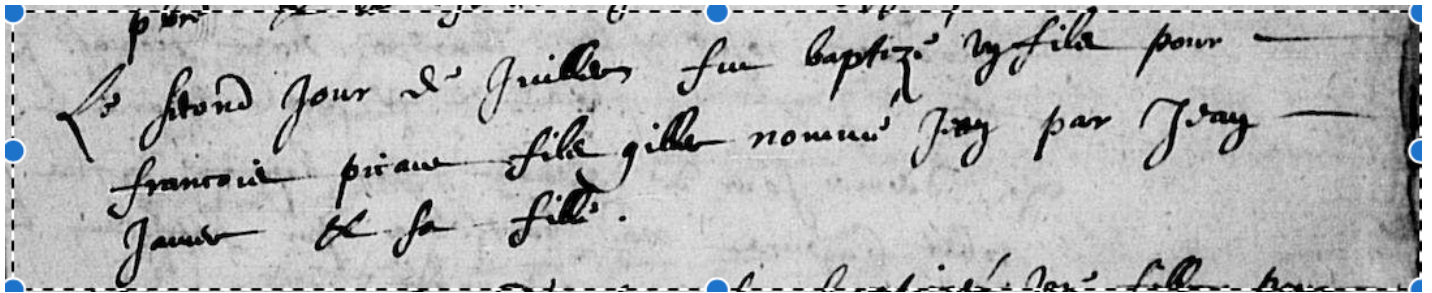 Le second Jour de Juillet fut baptizé ung fils pour
francois picaut fils gilles nommé Jean par Jean
Januer & sa fille.